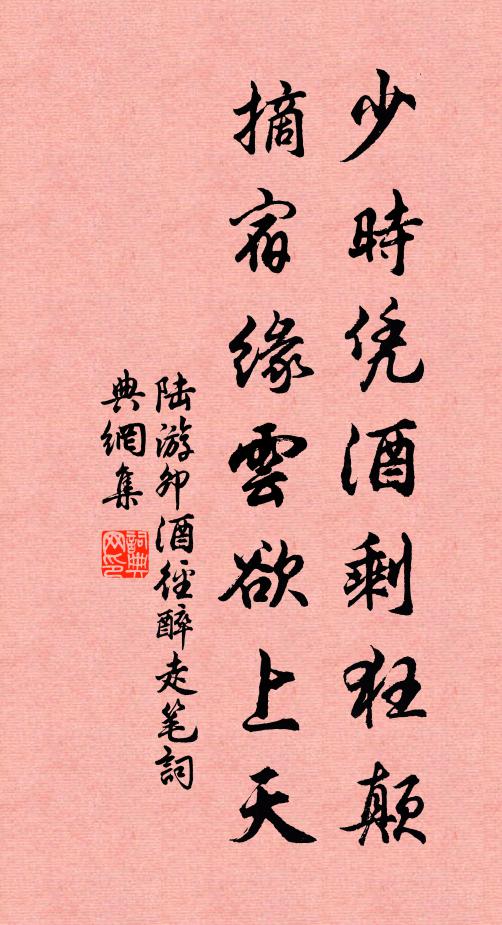 少時凭酒剩狂顛
摘宿缘雲欲上天
陆游卯酒徑醉走笔詞
典網集
詞典
网印